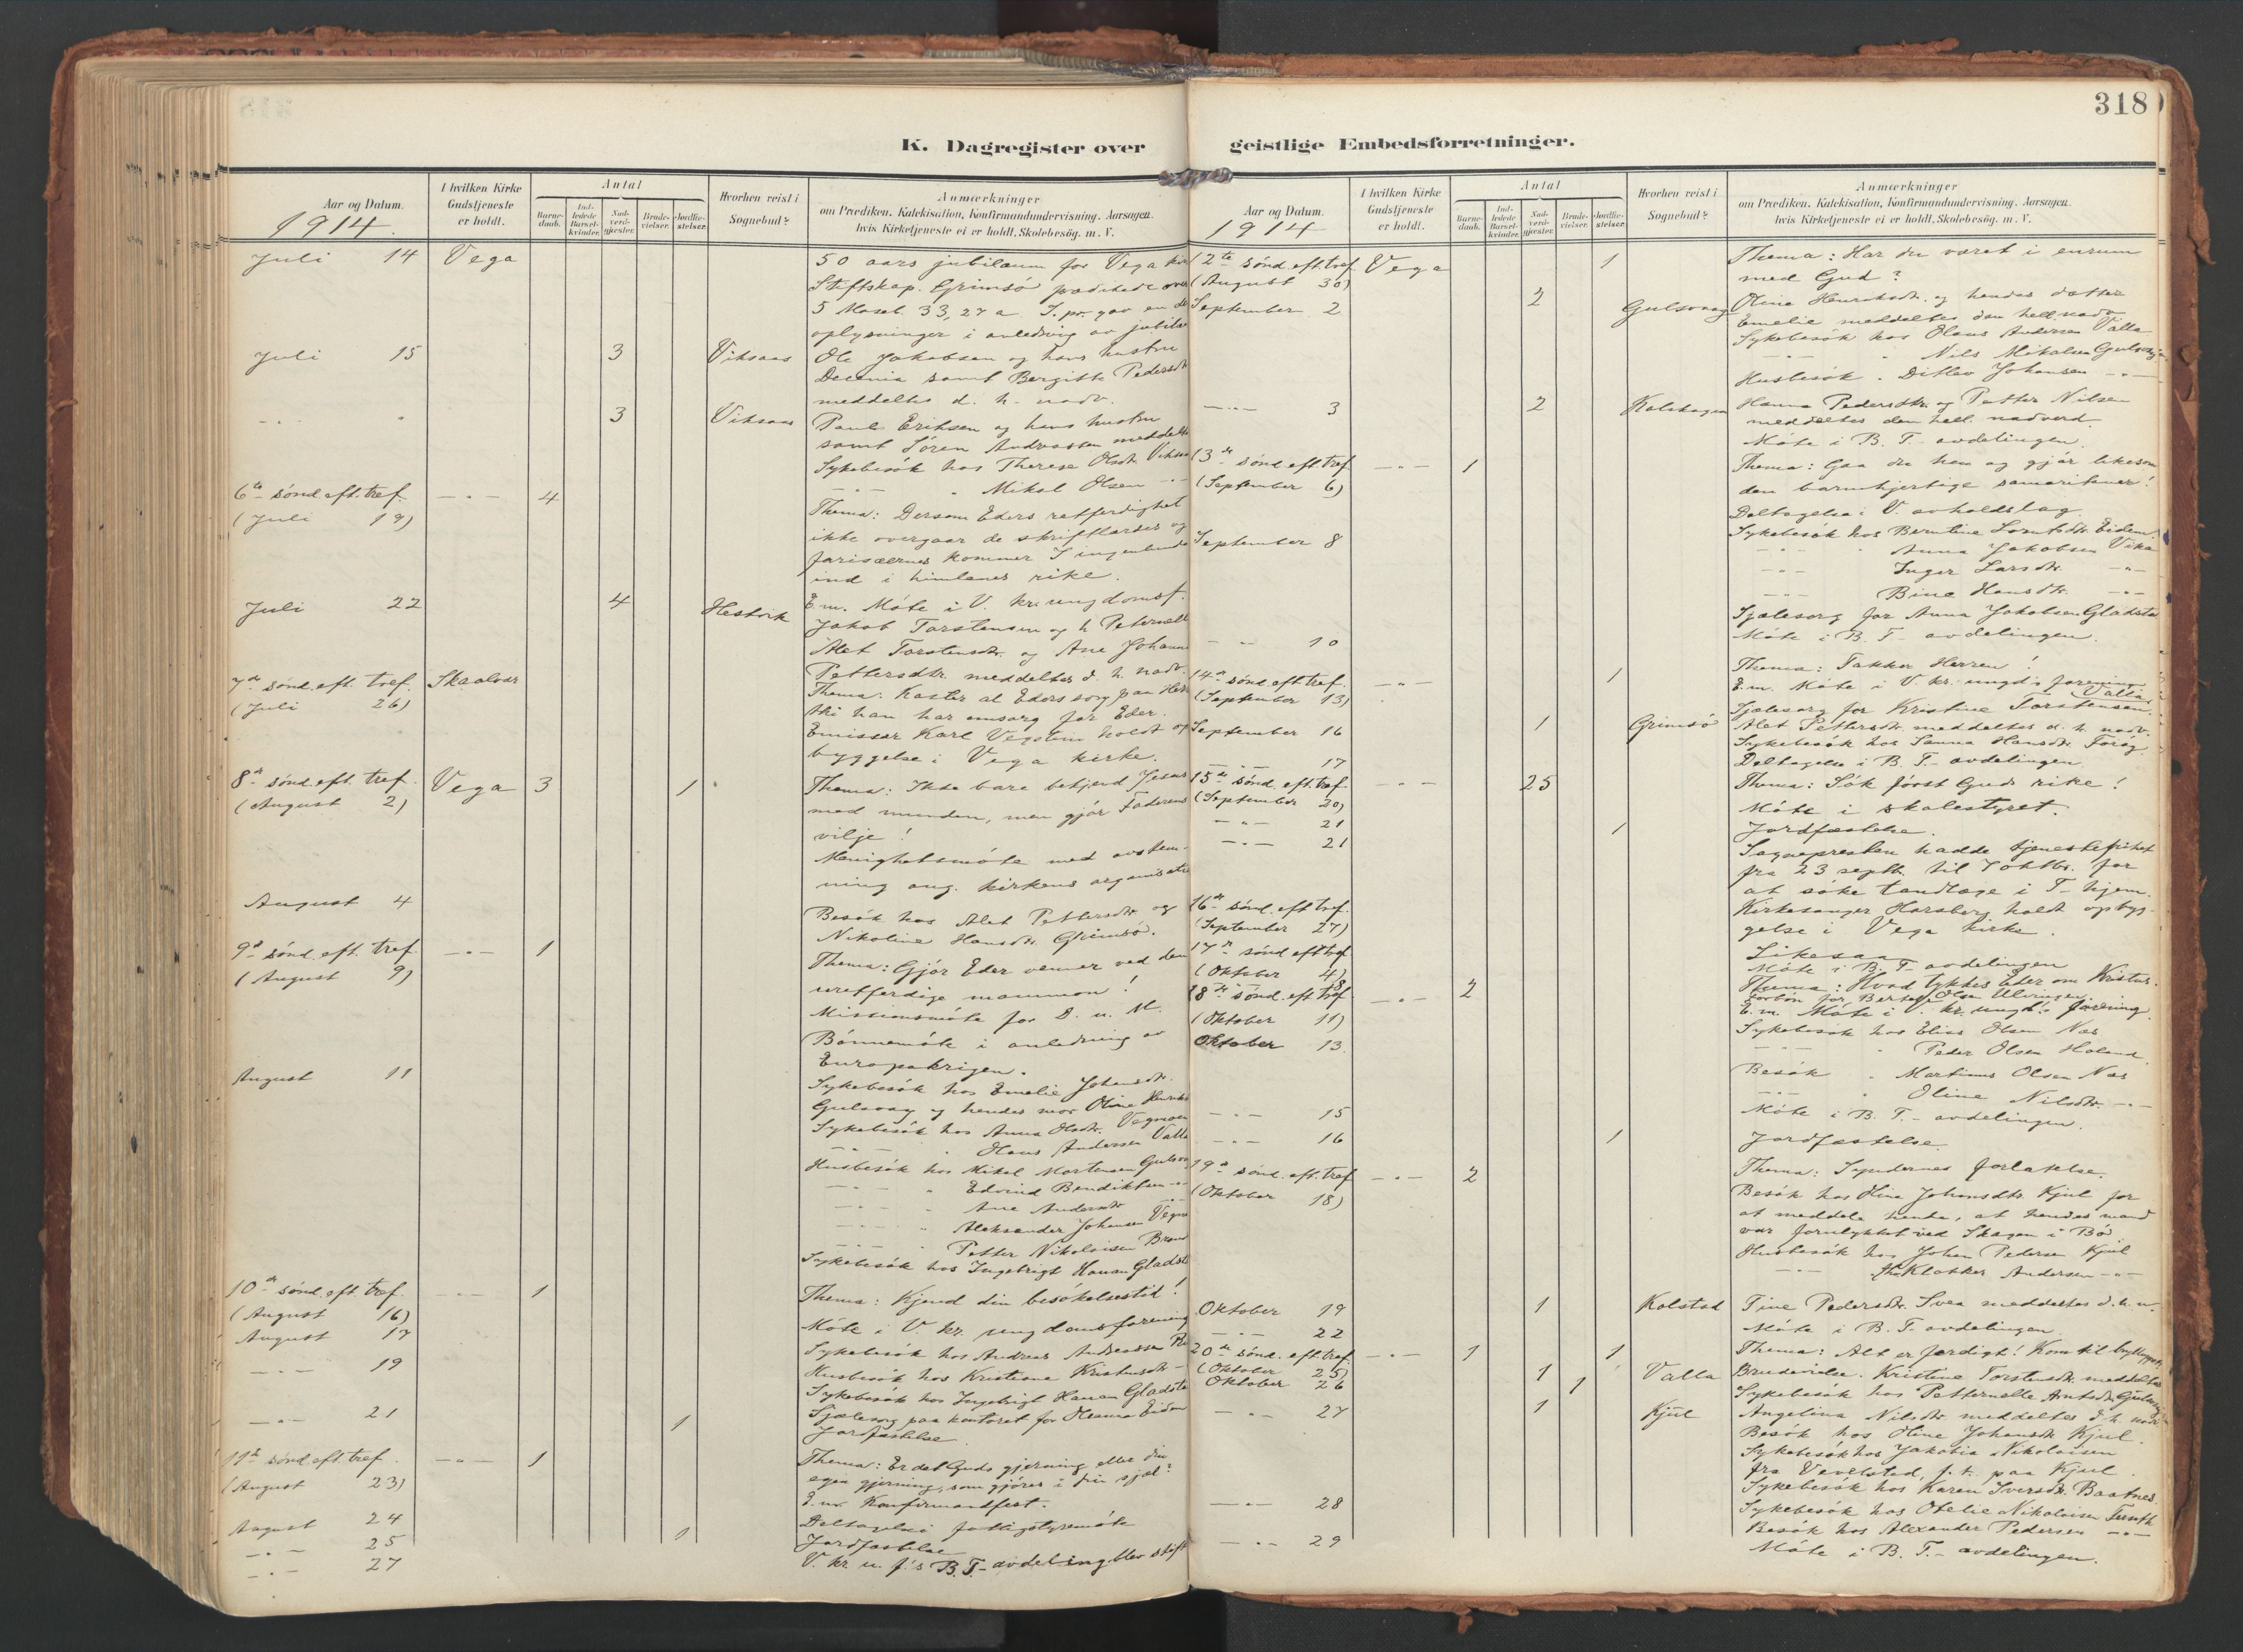 318
K. Dagregister over geistlige Embedsforretninger.
Aar og Datum.
1914.
I hvilken Kirke Gudstjeneste er holdt.
Antal
Barnedaab.
Indledede Barselkvinder.
Nadverdgjester.
Brudevielser.
Jordfæstelser.
Hvorhen reist i Sognebud?
Anmærkninger
om Prædiken, Katekisation, Konfirmandundervisning. Aarsagen,
hvis Kirketjeneste ei er holdt, Skolebesög. m. V.
Juli 14 Vega 50 aars jubilæum for Vega
Stiftskap. Grimsö prædikede over
5 Moseb. 33, 27 a S. pr. gav en del
oplysninger i anledning av
Juli 15 3 Viksaas Ole Jakobsen og hans hustru
samt Bergitte Pedersdtr
meddeltes d. h. nadv.
-"- 3 Viksaas Paul Eriksen og hans hustru
samt Sören Andreassen
Sykebesök hos Therese Olsdtr.
-"- " Mikal Olsen -"-
6te sönd. eft. tref. -"- 4 Thema: Dersom Eders retferdighet
(Juli 19) ikke overgaar de skriftlærdes og
farisæernes kommer I ingenlunde
ind i himlenes rike.
Juli 22 4 Hestvik E.m. Möte i V. kr. ungdomsf.
Jakob Torstensen og h. Peternelle
Alet Torstensdtr. og Ane
Pettersdtr. meddeltes d. h. nadv.
7de sönd. eft. tref. Skaalvær Thema: Kaster al Eders sorg paa
(Juli 26) thi han har omsorg for Eder.
Emissær Karl holdt op
byggelse i Vega kirke.
8de sönd. eft. tref. Vega 3 1 Thema: Ikke bare bekjend Jesus
(August 2) med munden, men gjör Faderens
vilje!
Menighetsmöte med avstem-
ning ang. kirkens
August 4 Besök hos Alet Pettersdtr. og
Nikoline Hansdtr. Grimsö.
9de sönd. eft. tref. -"- 1 Thema: Gjör Eder venner ved den
(August 9) uretferdige mammon!
Missionsmöte for D. n. M.
Bönnemöte i anledning av
Europakrigen.
August 11 Sykebesök hos Emelie Johansdtr.
Gulsvaag og hendes mor Oline
Sykebesök hos Anna Olsdtr.
-"- " Olaus Andersen Valla
Husbesök hos Mikal Mortensen
-"- " Edvind Bendiktsen -"-
-"- " Ane Andersdtr
-"- " Aleksander Johansen
-"- " Petter Nikolaisen
Sykebesök hos Ingebrigt Hansen
10de sönd. eft. tref. -"- 1 Thema: Kjend din besökelsestid!
(August 16)
August 17 Möte i V. kr. ungdomsforening
Sykebesök hos Andreas Andreassen
-"- 19 Husbesök hos Kristiane
Sykebesök hos Ingebrigt Hansen
-"- 21 1 Sjælesorg paa kontoret for Eiden
Jordfæstelse.
11te sönd. eft. tref. -"- 1 Thema: Er det Guds gjerning eller din
(August 23) egen gjerning, som gjöres i din sjæl?
E.m. Konfirmandfest.
August 24 Deltagelse i fattigstyremöte
-"- 25 1 Jordfæstelse
-"- 27 V. kr. u. f.'s B. T.-avdeling blev stift
Aar og Datum.
1914
I hvilken Kirke Gudstjeneste er holdt.
Antal
Barnedaab.
Indledede Barselkvinder.
Nadverdgjester.
Brudevielser.
Jordfæstelser.
Hvorhen reist i Sognebud?
Anmærkninger
om Prædiken, Katekisation, Konfirmandundervisning. Aarsagen,
hvis Kirketjeneste ei er holdt, Skolebesög. m. V.
12te sönd. eft. tref. Vega 1 Thema: Har du været i enrum
(August 30) med Gud?
September 2 2 Gulsvaag Oline og hendes datter
Emelie meddeltes den hell. nadv.
Sykebesök hos Olaus Andersen Valla
-"- " Nils Mikalsen
Husbesök " Ditlev Johansen -"-
-"- 3 2 Hanna Pedersdtr. og Petter Nilsen
meddeltes den hell. nadverd.
Möte i B. T.-avdelingen.
13de sönd. eft. tref. -"- 1 Thema: Gaa du hen og gjör likesom
(September 6) den barmhjertige samaritaner!
Deltagelse i V. avholdslag.
September 8 Sykebesök hos Berntine Eidem.
-"- " Anna Jakobsen Vika
-"- " Inger Larsdtr. -"-
-"- " Bine Hansdtr. -"-
Sjælesorg for Anna Jakobsen
-"- 10 Möte i B. T.-avdelingen.
14de sönd. eft. tref. -"- 1 Thema: Takker Herren!
(September 13) E.m. Möte i V. kr. ungd's forening
Sjælesorg for Kristine Torstensen. Valla
September 16 1 Grimsö Alet Pettersdtr. meddeltes d. h. nadv.
Sykebesök hos Sanna Hansdtr.
-"- 17 Deltagelse i B. T.-avdelingen
15de sönd. eft. tref. -"- 25 Thema: Sök först Guds rike!
(September 20)
-"- 21 Möte i skolestyret.
-"- 21 1 Jordfæstelse.
Sognepresten hadde tjenestefrihet
fra 23 septb. til 7 oktbr. for
at söke tandlæge i T-hjem.
16de sönd. eft. tref. Kirkesanger holdt opbyg-
(September 27) gelse i Vega kirke.
17de sönd. eft. tref. Likesaa
(Oktober 4)
8 Möte i B. T-avdelingen
18de sönd. eft. tref. -"- 2 Thema: Hvad tykkes Eder om Kristus.
(Oktober 11) Forbön for Olsen
E.m. Möte i V. kr. ungd's forening
Oktober 13. Sykebesök hos Elias Olsen Næs
-"- " Peder Olsen Holand.
Besök " Martinus Olsen Næs
-"- " Oline Nilsdtr. -"-
-"- 15 Möte i B. T.-avdelingen.
-"- 16 1 Jordfæstelse.
19de sönd. eft. tref. -"- 2 Thema: Syndernes forlatelse.
(Oktober 18) Besök hos Oline Johansdtr. Kjul for
at meddele hende, at hendes mand
var forulykket ved Skagen i Bö.
Husbesök hos Johan Pedersen Kjul
-"- Klokker Andersen -"-
Oktober 19 1 Kolstad Tine Pedersdtr. meddeltes d. h. n.
-"- 22 Möte i B. T-avdelingen.
20de sönd. eft. tref. -"- 1 1 Thema: Alt er færdigt! Kom til
(Oktober 25)
Oktober 26 1 1 Valla Brudevielse. Kristine Torstensdtr. meddeltes
Sykebesök hos Petternelle
-"- 27 1 Kjul Angelina Nilsdtr. meddeltes d. h. nadv
Besök hos Oline Johansdtr. Kjul.
Sykebesök hos Jakobia Nikolaisen
fra Vevelstad, f. t. paa Kjul.
Sykebesök hos Karen Iversdtr. Baatnes.
-"- 28 Sykebesök hos Otelie Nikolaisen
Besök hos Alexander Pedersen -"-
-"- 29 Möte i B. T.-avdelingen.